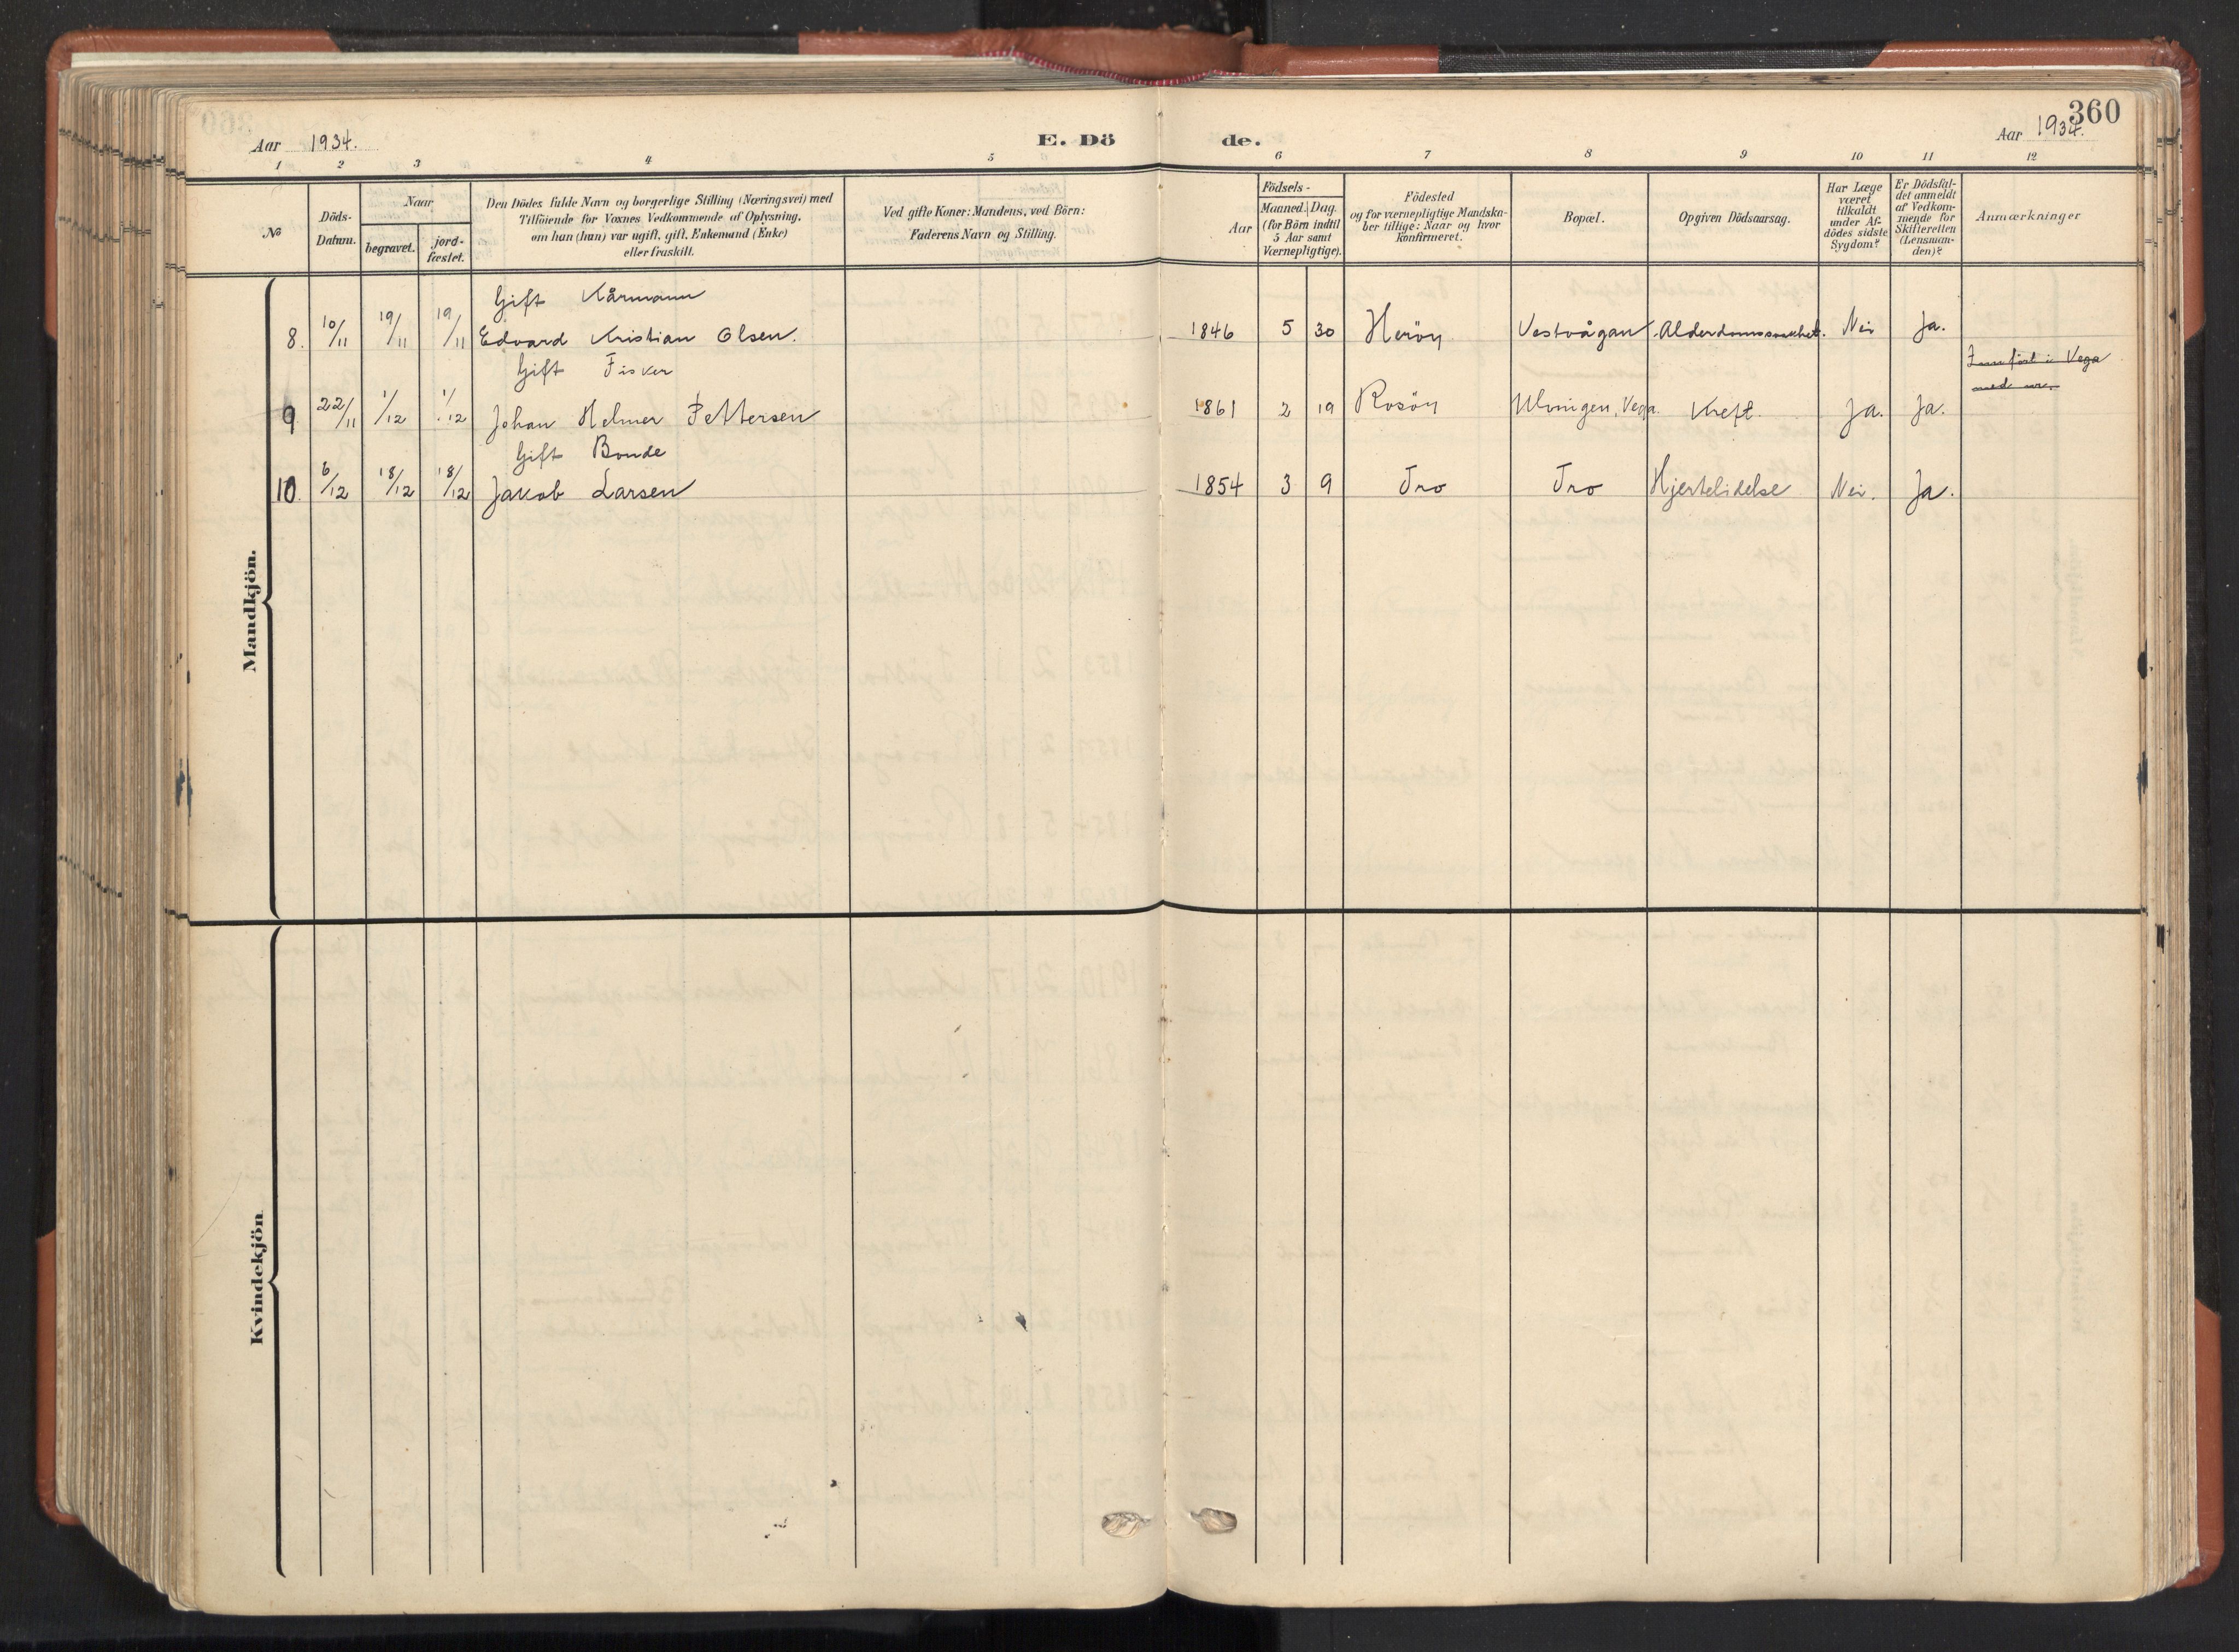 360
Aar 1934.
E. Dö
de.
Aar 1934.
1 2 3 4 5 6 7 8 9 10 11 12
№
Döds-
Datum.
Naar
begravet.
jord-
fæstet.
Den Dödes fulde Navn og borgerlige Stilling (Næringsvei) med
Tilföiende for Voxnes Vedkommende af Oplysning,
om han (hun) var ugift, gift, Enkemand (Enke)
eller fraskilt.
Ved gifte Koner: Mandens, ved Börn:
Faderens Navn og Stilling.
Födsels-
Aar
Maaned. Dag.
(for Börn indtil
5 Aar samt
Værnepligtige).
Födested
og for værnepligtige Mandska-
ber tillige: Naar og hvor
Konfirmeret.
Bopæl.
Opgiven Dödsaarsag.
Har Læge
været
tilkaldt
under Af-
dödes sidste
Sygdom?
Er Dödsfal-
det anmeldt
af Vedkom-
mende for
Skifteretten
(Lensman-
den)?
Anmærkninger
Mandkjön.
Gift Kårmann
8. 10/11 19/11 19/11 Edvard Kristian Olsen. 1846 5 30 Heröy Vestvågan Alderdomssvakhet. Nei Ja.
Gift Fisker
Innført i Vega
med nr.
9 22/11 1/12 1/12 Johan Helmer Pettersen 1861 2 19 Rosöy Ulvingen, Vega. Kreft. Ja. Ja.
Gift Bonde
10. 6/12 18/12 18/12 Jakob Larsen 1854 3 9 Tro Tro Hjertelidelse Nei. Ja.
Kvindekjön